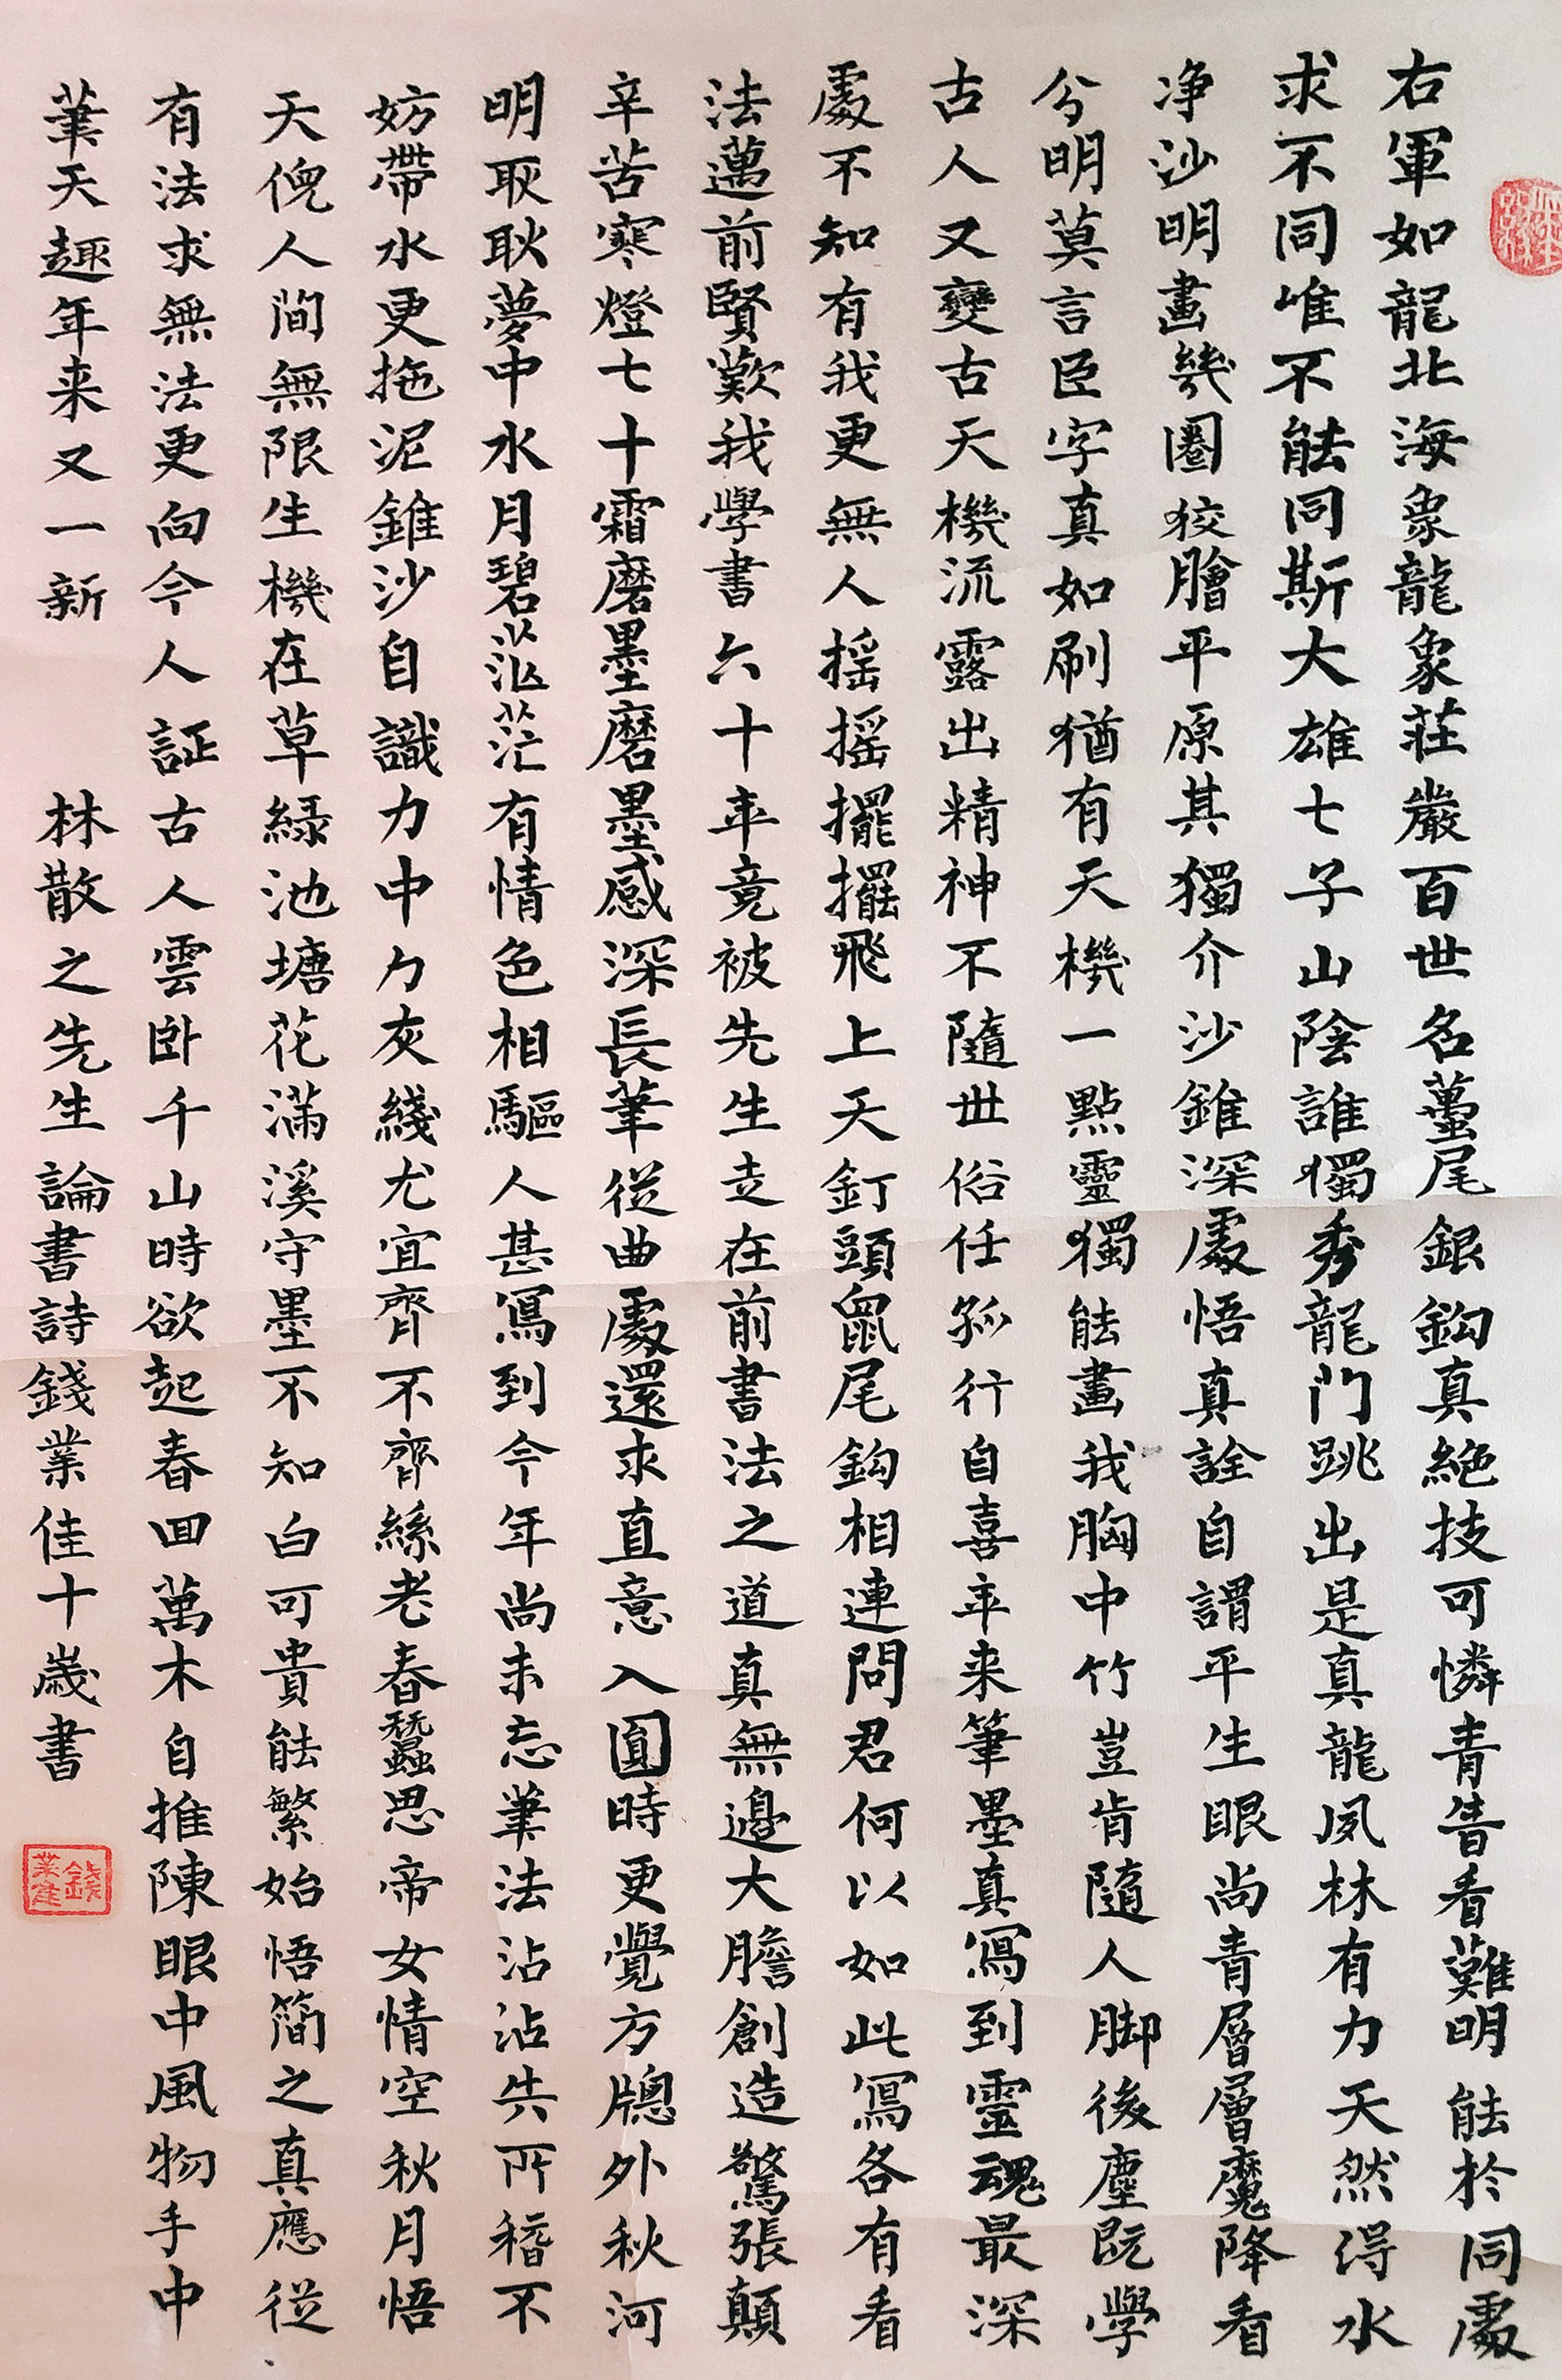 右軍如龍北海象龍象莊嚴百世名蠆尾銀鈎真絕技可憐青眚看難明能於同處
求不同唯不能同斯大雄七子山陰誰獨秀龍門跳出是真龍夙林有力天然得水
净沙明畫幾圈狡膾平原其獨介沙錐深處悟真詮自謂平生眼尚青層層魔降看
分明莫言臣字真如刷猶有天機一點靈獨能畫我胸中竹豈肯隨人脚後塵既學
古人又變古天機流露出精神不隨世俗任孤行自喜年来筆墨真寫到靈魂最深
處不知有我更無人摇摇擺擺飛上天釘頭鼠尾鈎相連問君何以如此寫各有看
法邁前賢歎我學書六十年竟被先生走在前書法之道真無邊大膽創造驚張顛
辛苦寒燈七十霜磨墨磨墨感深長筆從曲處還求直意入圓時更覺方牕外秋河
明耿耿夢中水月碧茫茫有情色相驅人甚寫到今年尚未忘筆法沾沾失所稽不
妨帶水更拖泥錐沙自識力中力灰綫尤宜齊不齊絲老春蠶思帝女情空秋月悟
天倪人間無限生機在草緑池塘花满溪守墨不知白可貴能繁始悟簡之真應從
有法求無法更向今人証古人雲卧千山時欲起春回萬木自推陳眼中風物手中
筆天趣年来又一新
林散之先生論書詩錢業佳十歲書
錢業佳